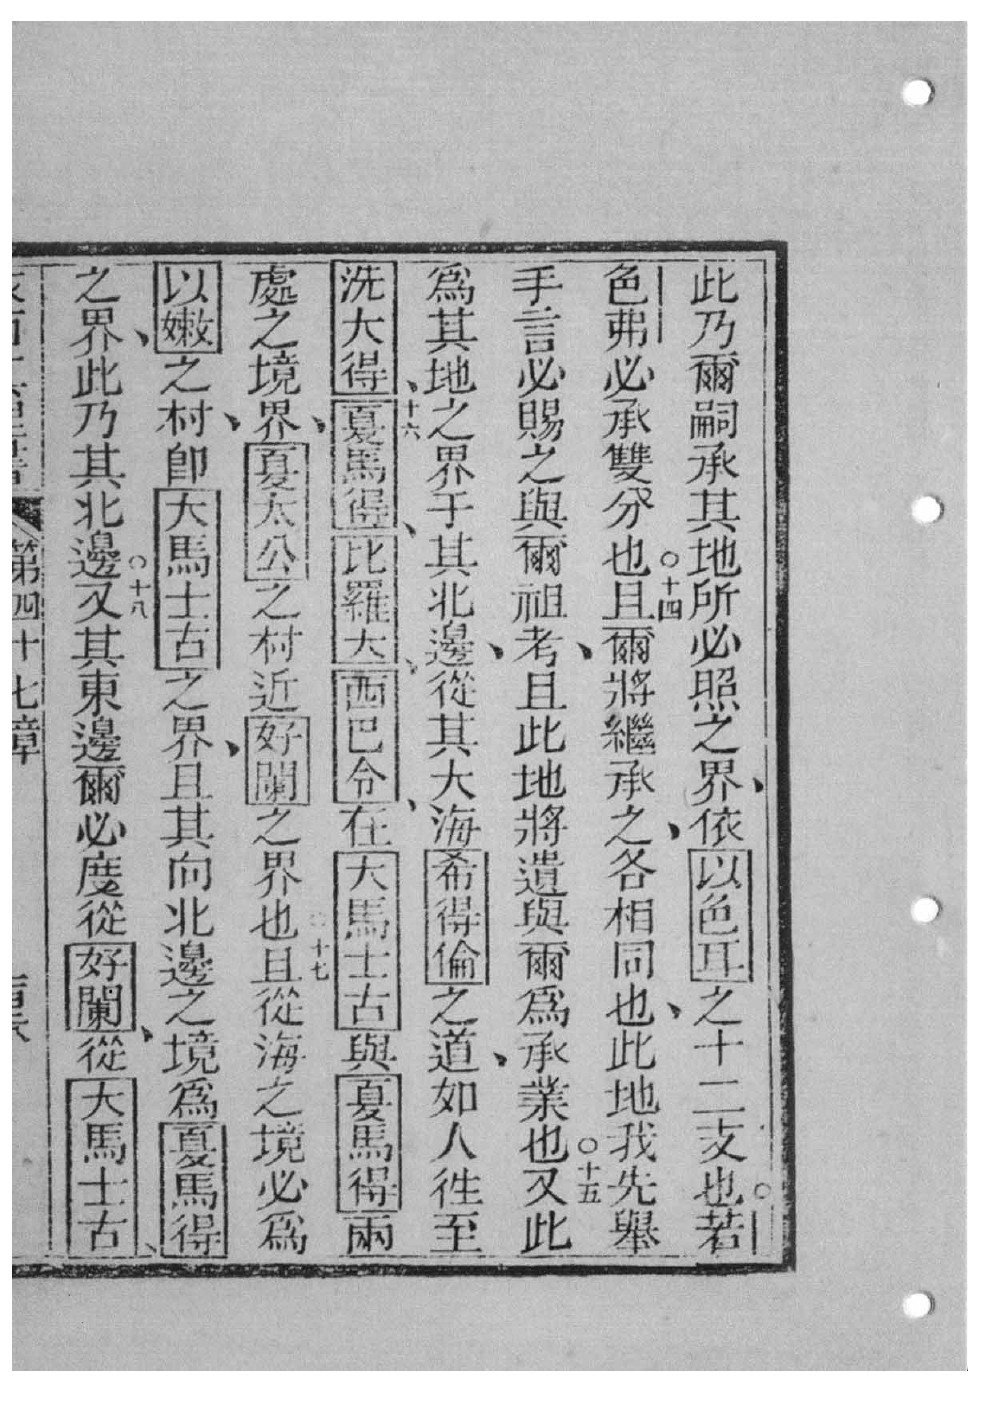 此乃爾嗣承其地所必照之界、依以色耳之十二支也○若
色弗必承雙分也○十四且爾將繼承之、各相同也、此地我先舉
手言必賜之與爾祖考、且此地將遺與爾爲承業也○十五又此
爲其地之界于其北邊、從其大海希得倫之道、如人徃至
洗大得、十六夏馬得、比羅大、西巴令、在大馬士古與夏馬得兩
處之境界、夏太公之村近好闌之界也○十七且從海之境必爲
以嫩之村、卽大馬士古之界、且其向北邊之境爲夏馬得
之界、此乃其北邊○十八又其東邊爾必度從好闌、從大馬士古、
第四十七章